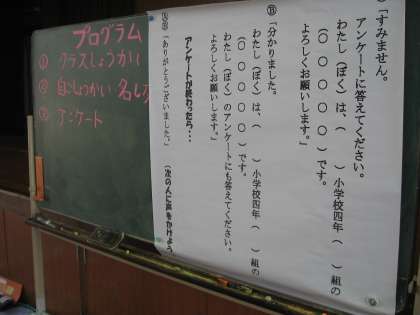 プログラム
① クラスしょうかい
② 自こしょうかい 名し
③ アンケート
「すみません。
アンケートに答えてください。
わたし(ぼく)は、(　　)小学校四年(　　)組の
(〇〇〇〇)です。
よろしくお願いします。」
Ⓑ「分かりました。
わたし(ぼく)は、(　　)小学校四年(　　)組の
(〇〇〇〇)です。
わたし(ぼく)のアンケートにも答えてください。
よろしくお願いします。」
アンケートが終わったら・・・
ⒶⒷ「ありがとうございました。」　(次の人に声をかけよう